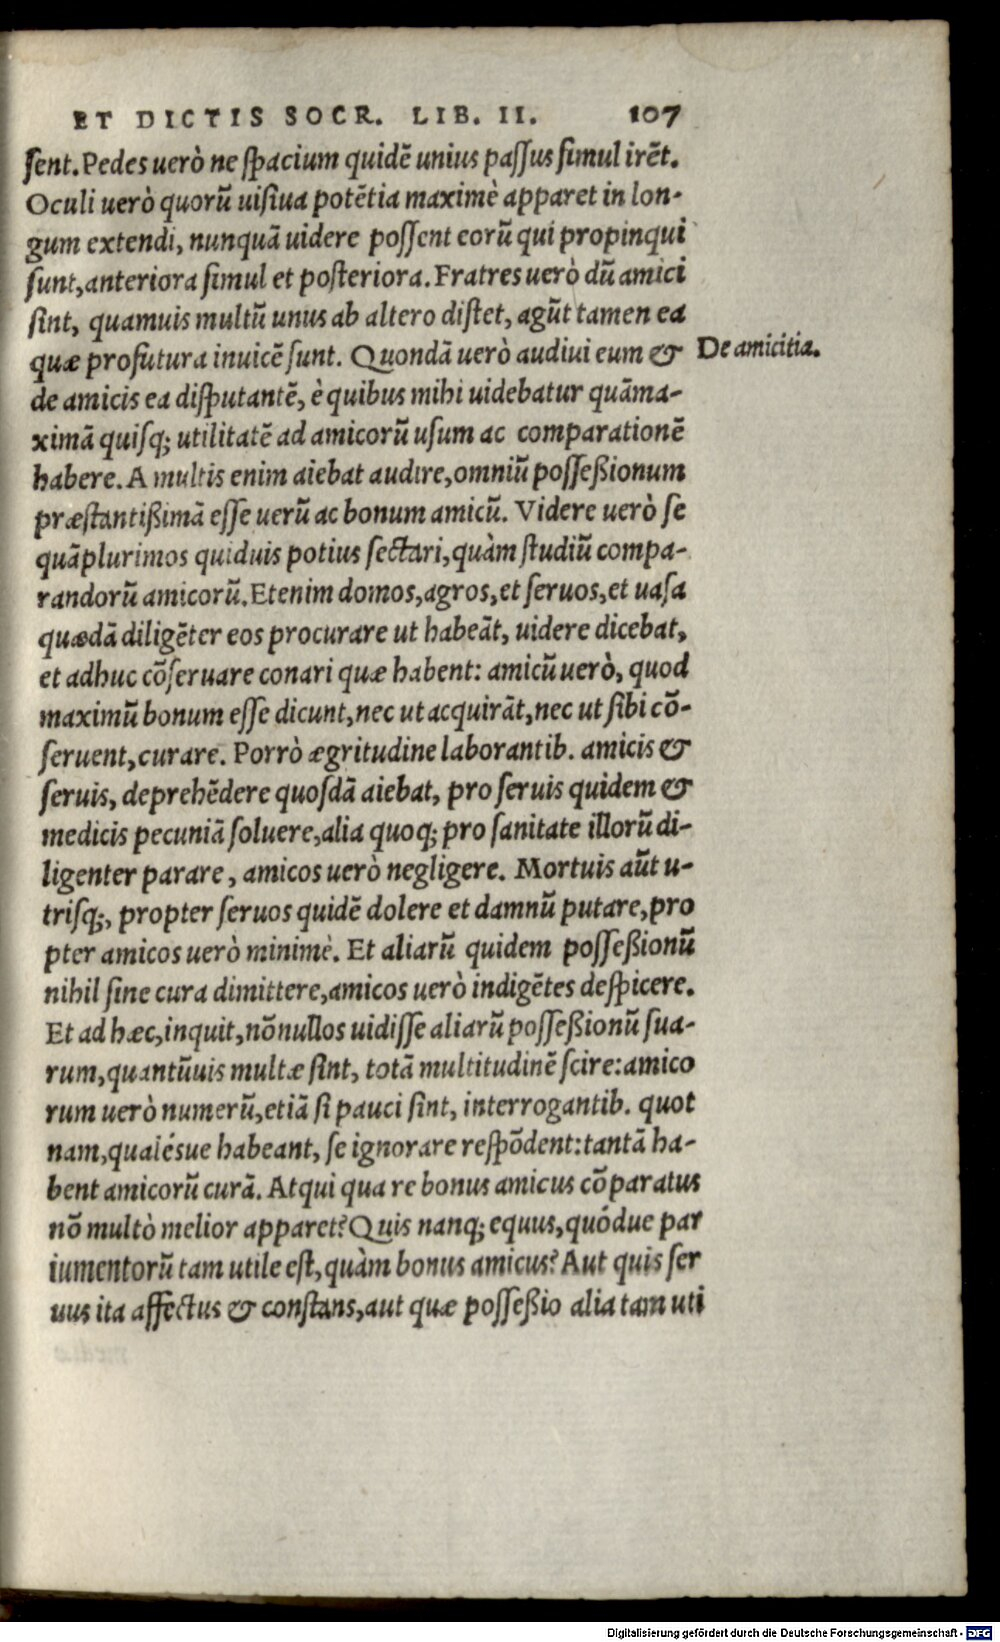 ET DICTIS SOCR. LIB. II. 107
ſent. Pedes uerò ne ſpacium quidē unius paſſus ſimul irēt.
Oculi uerò quorū uiſiua potētia maximè apparet in lon-
gum extendi, nunquā uidere poſſent eorū qui propinqui
ſunt, anteriora ſimul et poſteriora. Fratres uerò dū amici
ſint, quamuis multū unus ab altero diſtet, agūt tamen ea
quæ profutura inuicē ſunt. Quondā uerò audiui eum &
De amicitia.
de amicis ea diſputantē, è quibus mihi uidebatur quāma-
ximā quiſq; utilitatē ad amicorū uſum ac comparationē
habere. A multis enim aiebat audire, omniū poſſeßionum
præſtantißimā eſſe uerū ac bonum amicū. Videre uerò ſe
quāplurimos quiduis potius ſectari, quàm ſtudiū compa-
randorū amicorū. Etenim domos, agros, et ſeruos, et uaſa
quædā diligēter eos procurare ut habeāt, uidere dicebat,
et adhuc cōſeruare conari quæ habent: amicū uerò, quod
maximū bonum eſſe dicunt, nec ut acquirāt, nec ut ſibi cō-
ſeruent, curare. Porrò ægritudine laborantib. amicis &
ſeruis, deprehēdere quoſdā aiebat, pro ſeruis quidem &
medicis pecuniā ſoluere, alia quoq; pro ſanitate illorū di-
ligenter parare, amicos uerò negligere. Mortuis aūt u-
triſq;, propter ſeruos quidē dolere et damnū putare, pro
pter amicos uerò minimè. Et aliarū quidem poſſeßionū
nihil ſine cura dimittere, amicos uerò indigētes deſpicere.
Et ad hæc, inquit, nōnullos uidiſſe aliarū poſſeßionū ſua-
rum, quantūuis multæ ſint, totā multitudinē ſcire: amico
rum uerò numerū, etiā ſi pauci ſint, interrogantib. quot
nam, qualésue habeant, ſe ignorare reſpōdent: tantā ha-
bent amicorū curā. Atqui qua re bonus amicus cōparatus
nō multò melior apparet? Quis nanq; equus, quódue par
iumentorū tam utile eſt, quàm bonus amicus? Aut quis ſer
uus ita affectus & conſtans, aut quæ poſſeßio alia tam uti
Digitalisierung gefördert durch die Deutsche Forschungsgemeinschaft - DFG